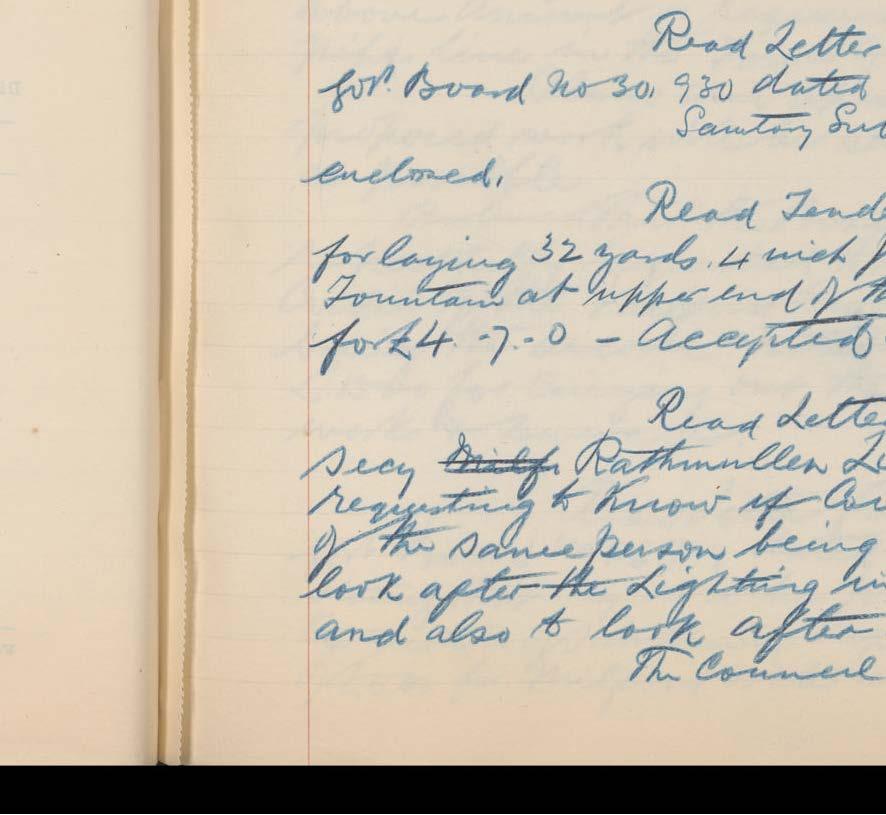 Read Letter
Govt. Board No 30,930 dated
Sanitary Sub
enclosed.
Read Tend
for laying 32 yards 4 inch
Fountain at upper end of th
for £4.-7.-0 - Accepted
Read Lette
Secy Rathmullen
requesting to know if Cou
of the same person being
look after the Lighting in
and also to look after
The Council